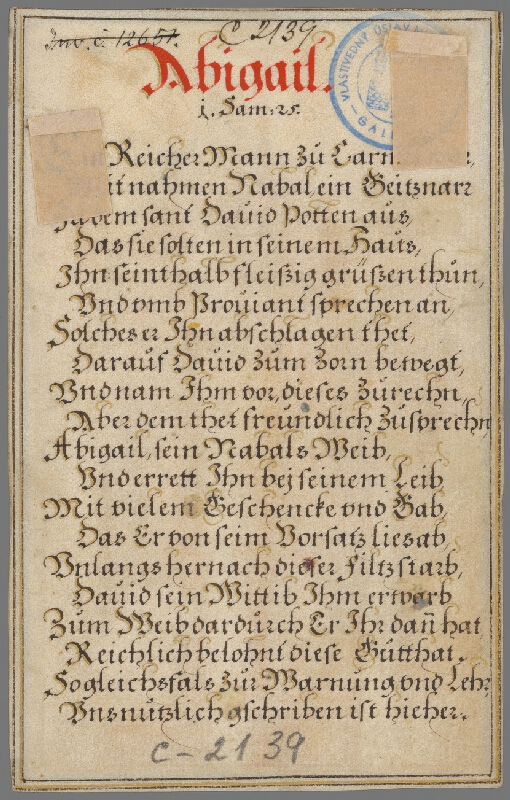 Inv. č. 12651.
C 2139
VLASTIVĚDNÝ ÚSTAV
Abigail.
1. Sam: 25.
Reicher Mann zu
mit nahmen Nabal ein Geitznarr
Zu dem sant Dauid Potten aus,
Das sie solten in seinem Haus,
Ihn seinthalb fleißig grüßen thun,
Vnd vmb Prouiant sprechen an,
Solches er Ihn abschlagen thet,
Darauf Dauid zum Zorn bewegt,
Vnd nam Ihm vor, dieses zurechn,
Aber dem thet freundlich zusprechn,
Abigail, sein Nabals Weib,
Vnd errett Ihn bej seinem Leib
Mit vielem Geschencke vnd Gab,
Das Er von seim Vorsatz lies ab,
Vnlangs hernach dieser Filtz starb,
Dauid sein Wittib Ihm erwarb
Zum Weib dardurch Er Ihr dañ hat
Reichlich belohnt diese Gutthat.
So gleichsfals zur Warnung vnd Lehr,
Vns nützlich gschriben ist hieher.
C-2139